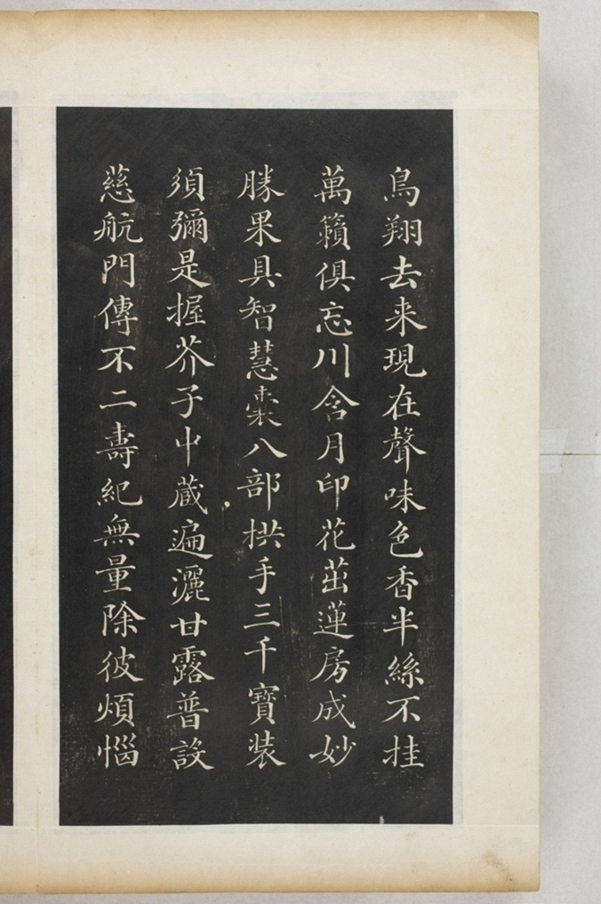 鳥翔去来現在聲味色香半絲不挂
萬籟俱忘川含月印花茁蓮房成妙
勝果具智慧囊八部拱手三千寶装
須彌是握芥子中蔵遍灑甘露普設
慈航門傳不二壽紀無量除彼煩惱